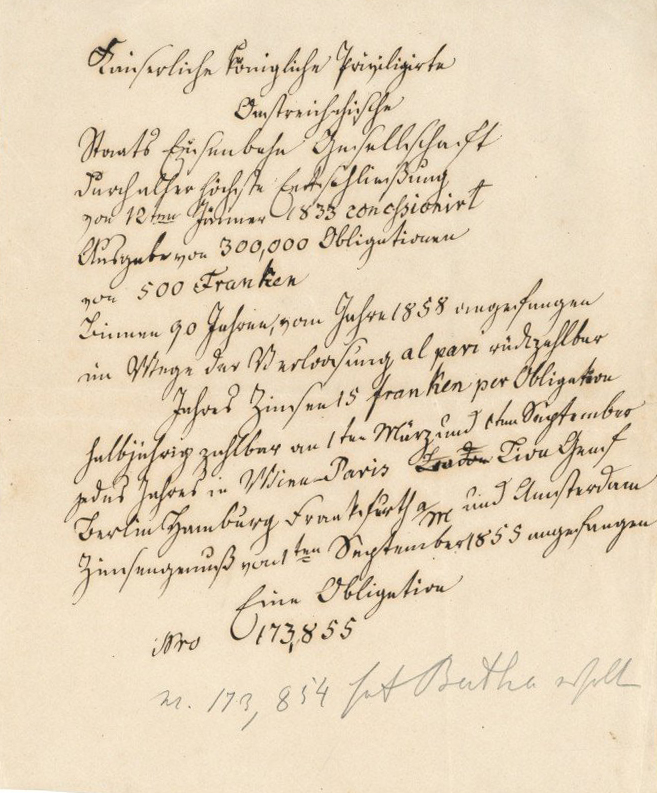 Kaiserliche königliche Priviligirte
Oestreichische
Staats Eisenbahn Gesellschaft
durch allerhöchste Entschliessung
von 12ten Jänner 1833 concessionirt
Ausgabe von 300,000 Obligationen
von 500 Franken
Binnen 90 Jahren, vom Jahre 1858 angefangen
im Wege der Verloosung al pari rückzahlbar
Jahres Zinsen 15 franken per Obligation
halbjährig zahlbar am 1ten März und 1ten September
jedes Jahres in Wien Paris London Lion Genf
Berlin Hamburg Frankfurth a/M und Amsterdam
Zinsengenuß vom 1ten September 1855 angefangen
Eine Obligation
Nro 173,855
nr. 173,854 hat Bertha erhalt